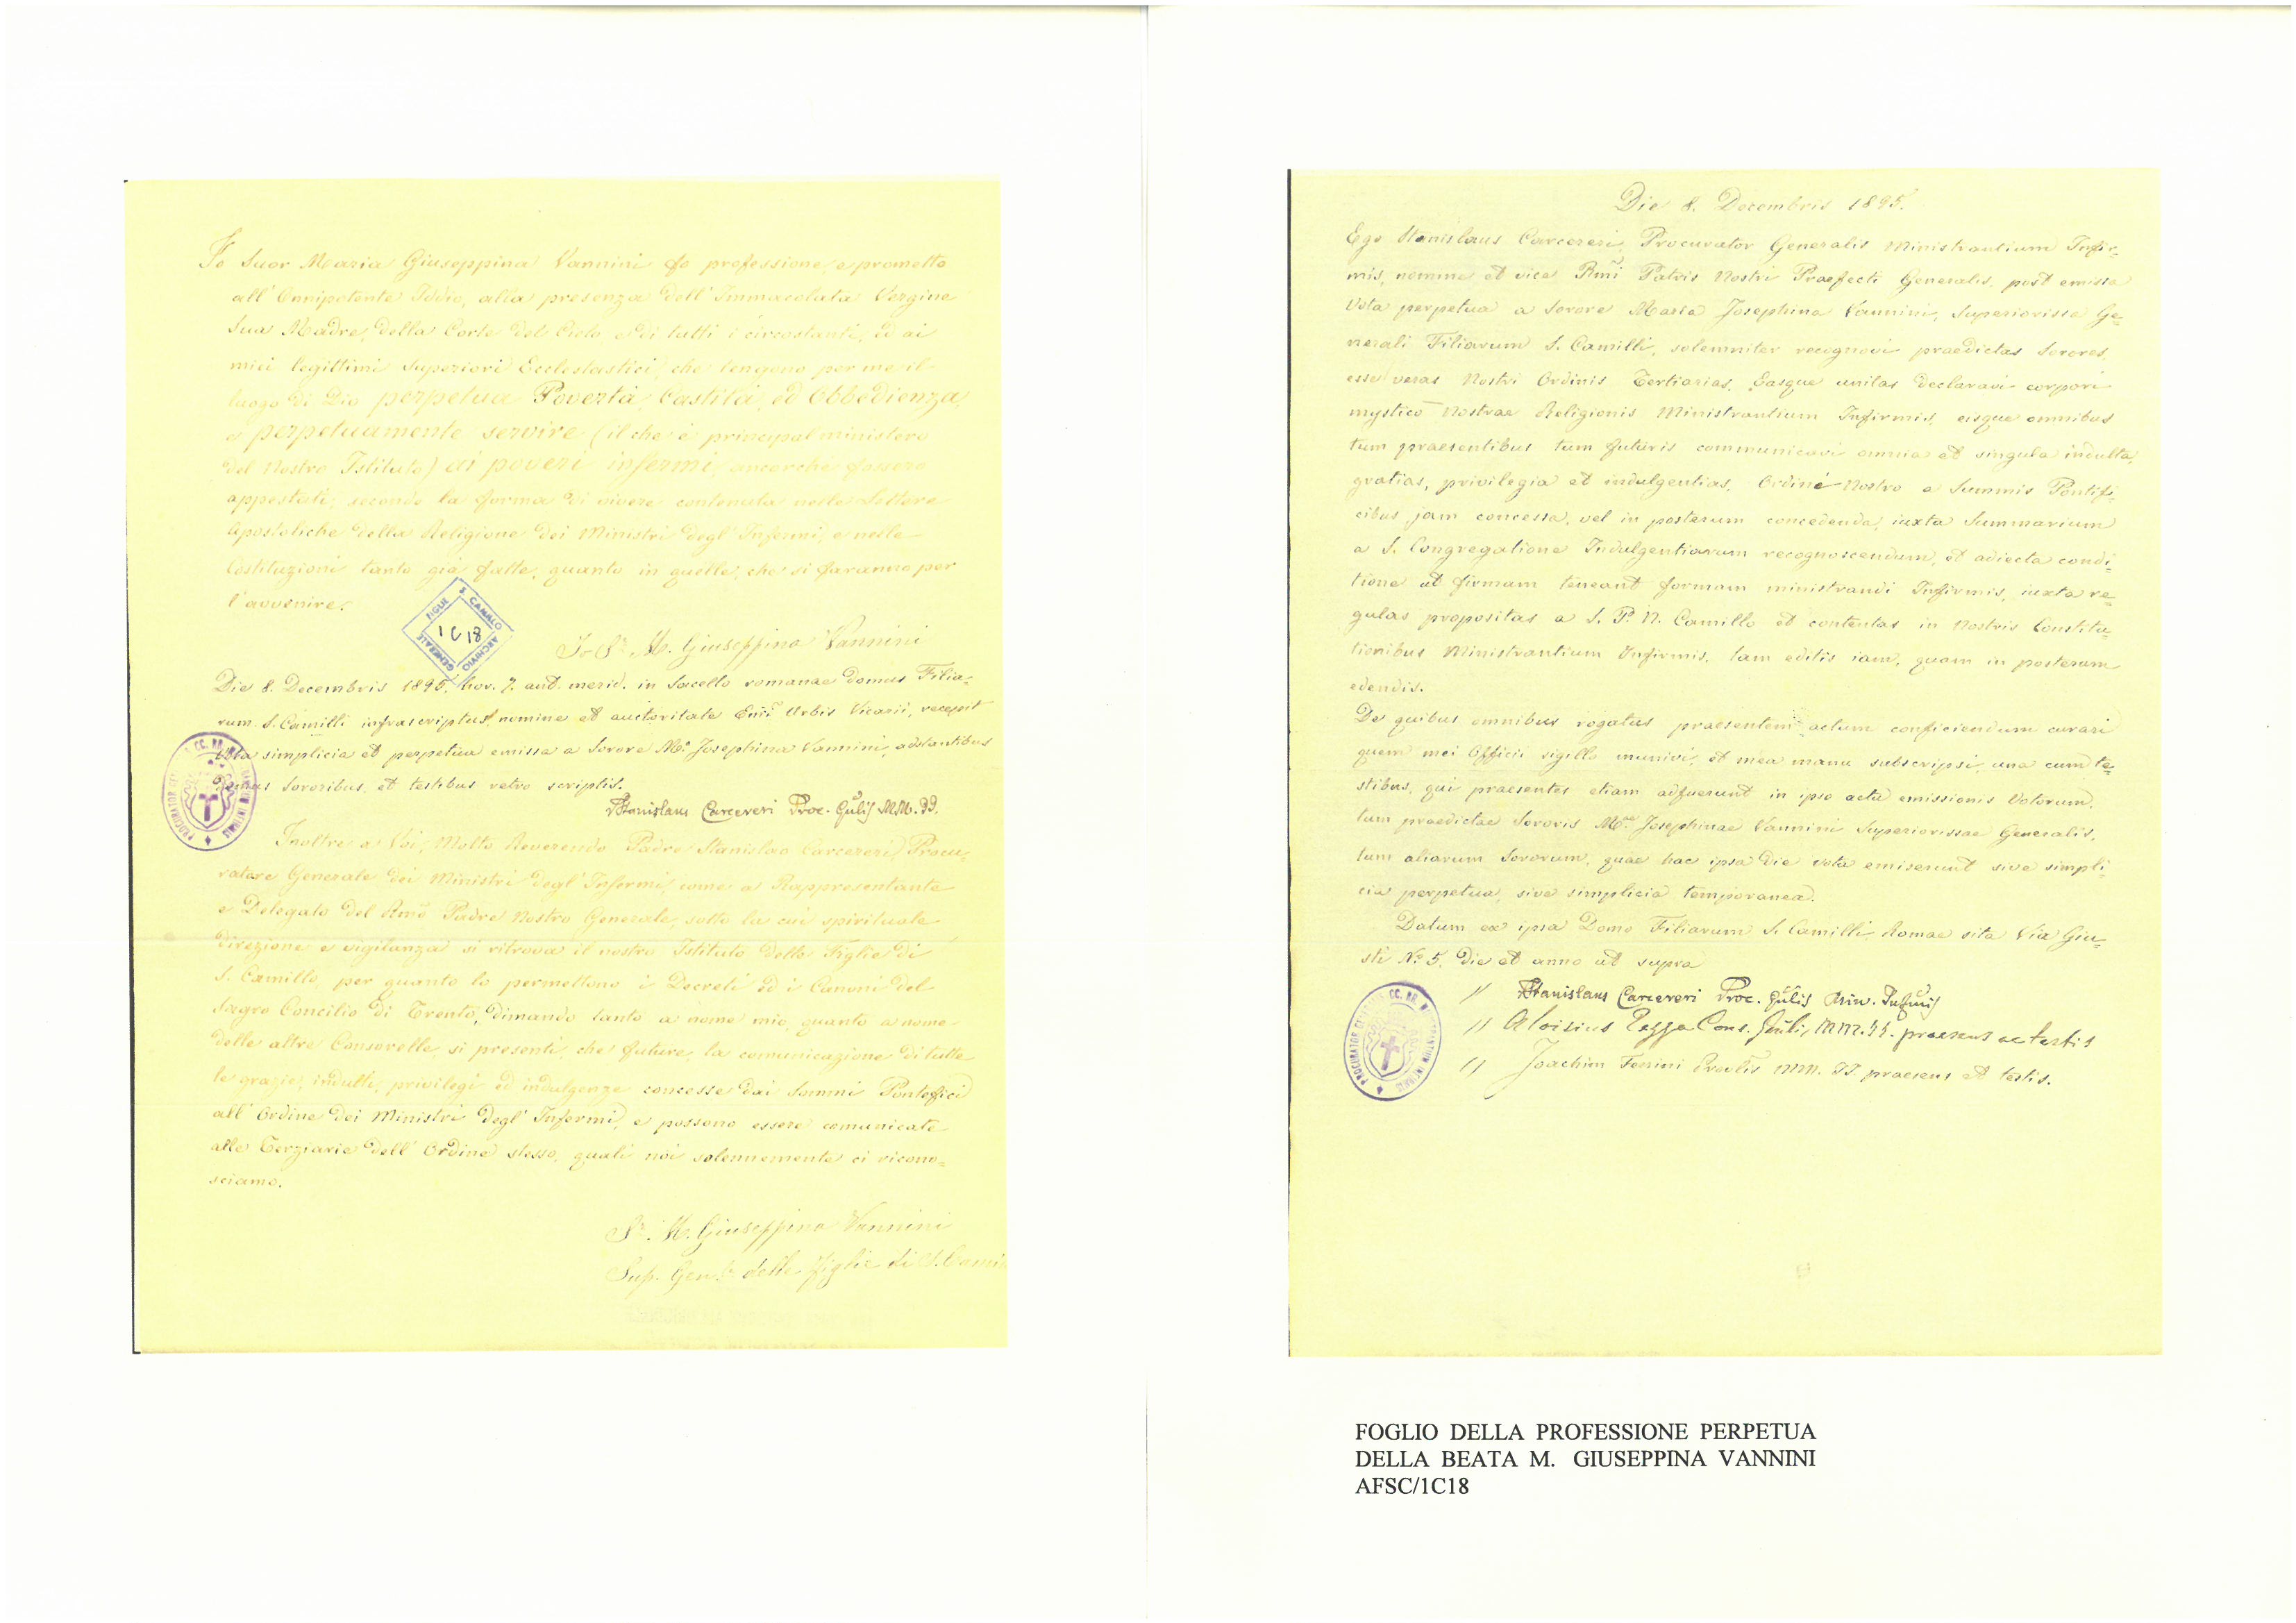 Io Suor Maria Giuseppina Vannini fo professione, e prometto
all'Onnipotente Iddio, alla presenza dell'Immacolata Vergine
Sua Madre, della Corte del Cielo e di tutti i circostanti, ed ai
miei legittimi Superiori Ecclesiastici, che tengono per me il
luogo di Dio perpetua Povertà, Castità, ed Obbedienza,
e perpetuamente servire (il che è principal ministero
del Nostro Istituto) ai poveri infermi, ancorché fossero
appestati; secondo la forma di vivere contenuta nelle Lettere
Apostoliche della Religione dei Ministri degl'Infermi, e nelle
Costituzioni tanto già fatte, quanto in quelle, che si faranno per
l'avvenire.
FIGLIE S. CAMILLO ARCHIVIO GENERALE
1 C 18
Io Sr. M. Giuseppina Vannini
Die 8. Decembris 1895. hor. 7. ant. merid. in Sacello romanae domus Filia-
rum S. Camilli infrascriptus, nomine et auctoritate Emi Urbis Vicarii, recepit
vota simplicia et perpetua emissa a Sorore Ma. Josephina Vannini, adstantibus
Sororibus, et testibus retro scriptis.
Stanislaus Carcereri Proc. Gūlis MM. II.
Inoltre a Voi, Molto Reverendo Padre Stanislao Carcereri, Procu-
ratore Generale dei Ministri degl'Infermi, come a Rappresentante
e Delegato del Rmo Padre Nostro Generale, sotto la cui spirituale
direzione e vigilanza si ritrova il nostro Istituto delle Figlie di
S. Camillo, per quanto lo permettono i Decreti ed i Canoni del
Sagro Concilio di Trento, dimando tanto a nome mio, quanto a nome
delle altre Consorelle, si presenti, che future, la comunicazione di tutte
le grazie, indulti, privilegi ed indulgenze concesse dai Sommi Pontefici
all'Ordine dei Ministri degl'Infermi, e possono essere comunicate
alle Terziarie dell'Ordine stesso, quali noi solennemente ci ricono-
sciamo.
Sr. M. Giuseppina Vannini
Sup. Genle delle Figlie di S. Cami
Die 8. Decembris 1895.
Ego Stanislaus Carcereri, Procurator Generalis Ministrantium Infir-
mis, nomine et vice Rmi Patris Nostri Praefecti Generalis, post emissa
Vota perpetua a Sorore Maria Josephina Vannini, Superiorissa Ge-
nerali Filiarum S. Camilli, solemniter recognovi praedictas Sorores,
esse veras Nostri Ordinis Tertiarias, Easque unitas declaravi corpori
mystico Nostrae Religionis Ministrantium Infirmis, eisque omnibus
tum praesentibus tum futuris communicavi omnia et singula indulta,
gratias, privilegia et indulgentias, Ordini Nostro a Summis Pontifi-
cibus jam concessa, vel in posterum concedenda, iuxta Summarium
a S. Congregatione Indulgentiarum recognoscendum, et adiecta condi-
tione ut firmam teneant formam ministrandi Infirmis, iuxta re-
gulas propositas a S. P. N. Camillo et contentas in Nostris Constitu-
tionibus Ministrantium Infirmis, tam editis iam, quam in posterum
edendis.
De quibus omnibus rogatus praesentem actum conficiendum curavi
quem mei Officii sigillo munivi, et mea manu subscripsi, una cum te-
stibus, qui praesentes etiam adfuerunt in ipso actu emissionis Votorum,
tum praedictae Sororis Mae Josephinae Vannini Superiorissae Generalis,
tum aliarum Sororum, quae hac ipsa die vota emiserunt sive simpli-
cia perpetua, sive simplicia temporanea.
Datum ex ipsa Domo Filiarum S. Camilli, Romae sita Via Giu-
sti No. 5. die et anno ut supra
Stanislaus Carcereri Proc. Gūlis Min. Infmis
Aloisius Cons. Gūlis MM. II. praesens ac testis
Joachim Ferrini MM. II. praesens et testis.
FOGLIO DELLA PROFESSIONE PERPETUA
DELLA BEATA M. GIUSEPPINA VANNINI
AFSC/1C18